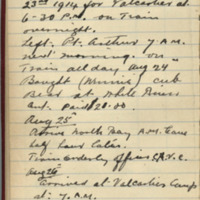 23rd 1914 for Valcartier at
6-30 P.M. on Train
overnight.
Left Pt. Arthur 7 A.M.
next morning. on
Train all day Aug 24
Bought (Winnie) cub
Bear at White River
Ont. Paid $20.00
Aug 25th
Arrive North Bay A.M. Eave
half hour late.
Train Orderly Officer C.A.V.C.
Aug 26
Arrived at Valcartier Camp
at 7 A.M.